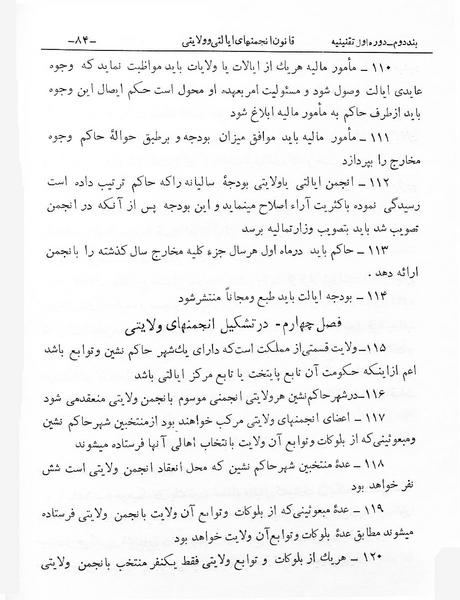 بند دوم ـ دوره اول تقنینیه قانون انجمنهای ایالتی و ولایتی -۸۴-
۱۱۰ ـ مأمور مالیه هریك از ایالات یا ولایات باید مواظبت نماید که وجوه
عایدی ایالت وصول شود و مسئولیت امر بعهده او محول است حکم ایصال این وجوه
باید از طرف حاکم به مأمور مالیه ابلاغ شود
۱۱۱ ـ مأمور مالیه باید موافق میزان بودجه و برطبق حوالهٔ حاکم وجوه
مخارج را بپردازد
۱۱۲ ـ انجمن ایالتی یا ولایتی بودجهٔ سالیانه را که حاکم ترتیب داده است
رسیدگی نموده باکثریت آراء اصلاح مینماید و این بودجه پس از آنکه در انجمن
تصویب شد باید بتصویب وزارت مالیه برسد
۱۱۳ ـ حاکم باید درماه اول هرسال جزء کلیه مخارج سال گذشته را بانجمن
ارائه دهد .
۱۱۴ ـ بودجه ایالت باید طبع و مجاناً منتشر شود
فصل چهارم - در تشکیل انجمنهای ولایتی
۱۱۵ ـ ولایت قسمتی از مملکت است که دارای یك شهر حاکم نشین و توابع باشد
اعم از اینکه حکومت آن تابع پایتخت یا تابع مرکز ایالتی باشد
۱۱۶ ـ در شهر حاکم نشین هر ولایتی انجمنی موسوم بانجمن ولایتی منعقد می شود
۱۱۷ ـ اعضای انجمنهای ولایتی مرکب خواهند بود از منتخبین شهر حاکم نشین
و مبعوثینی که از بلوکات و توابع آن ولایت با نتخاب اهالی آنها فرستاده میشوند
۱۱۸ ـ عدهٔ منتخبین شهر حاکم نشین که محل انعقاد انجمن ولایتی است شش
نفر خواهد بود
۱۱۹ ـ عدهٔ مبعوثینی که از بلوکات و توابع آن ولایت بانجمن ولایتی فرستاده
میشوند مطابق عدهٔ بلوکات و توابع آن ولایت خواهد بود
۱۲۰ ـ هریك از بلوکات و توابع ولایتی فقط یکنفر منتخب بانجمن ولایتی